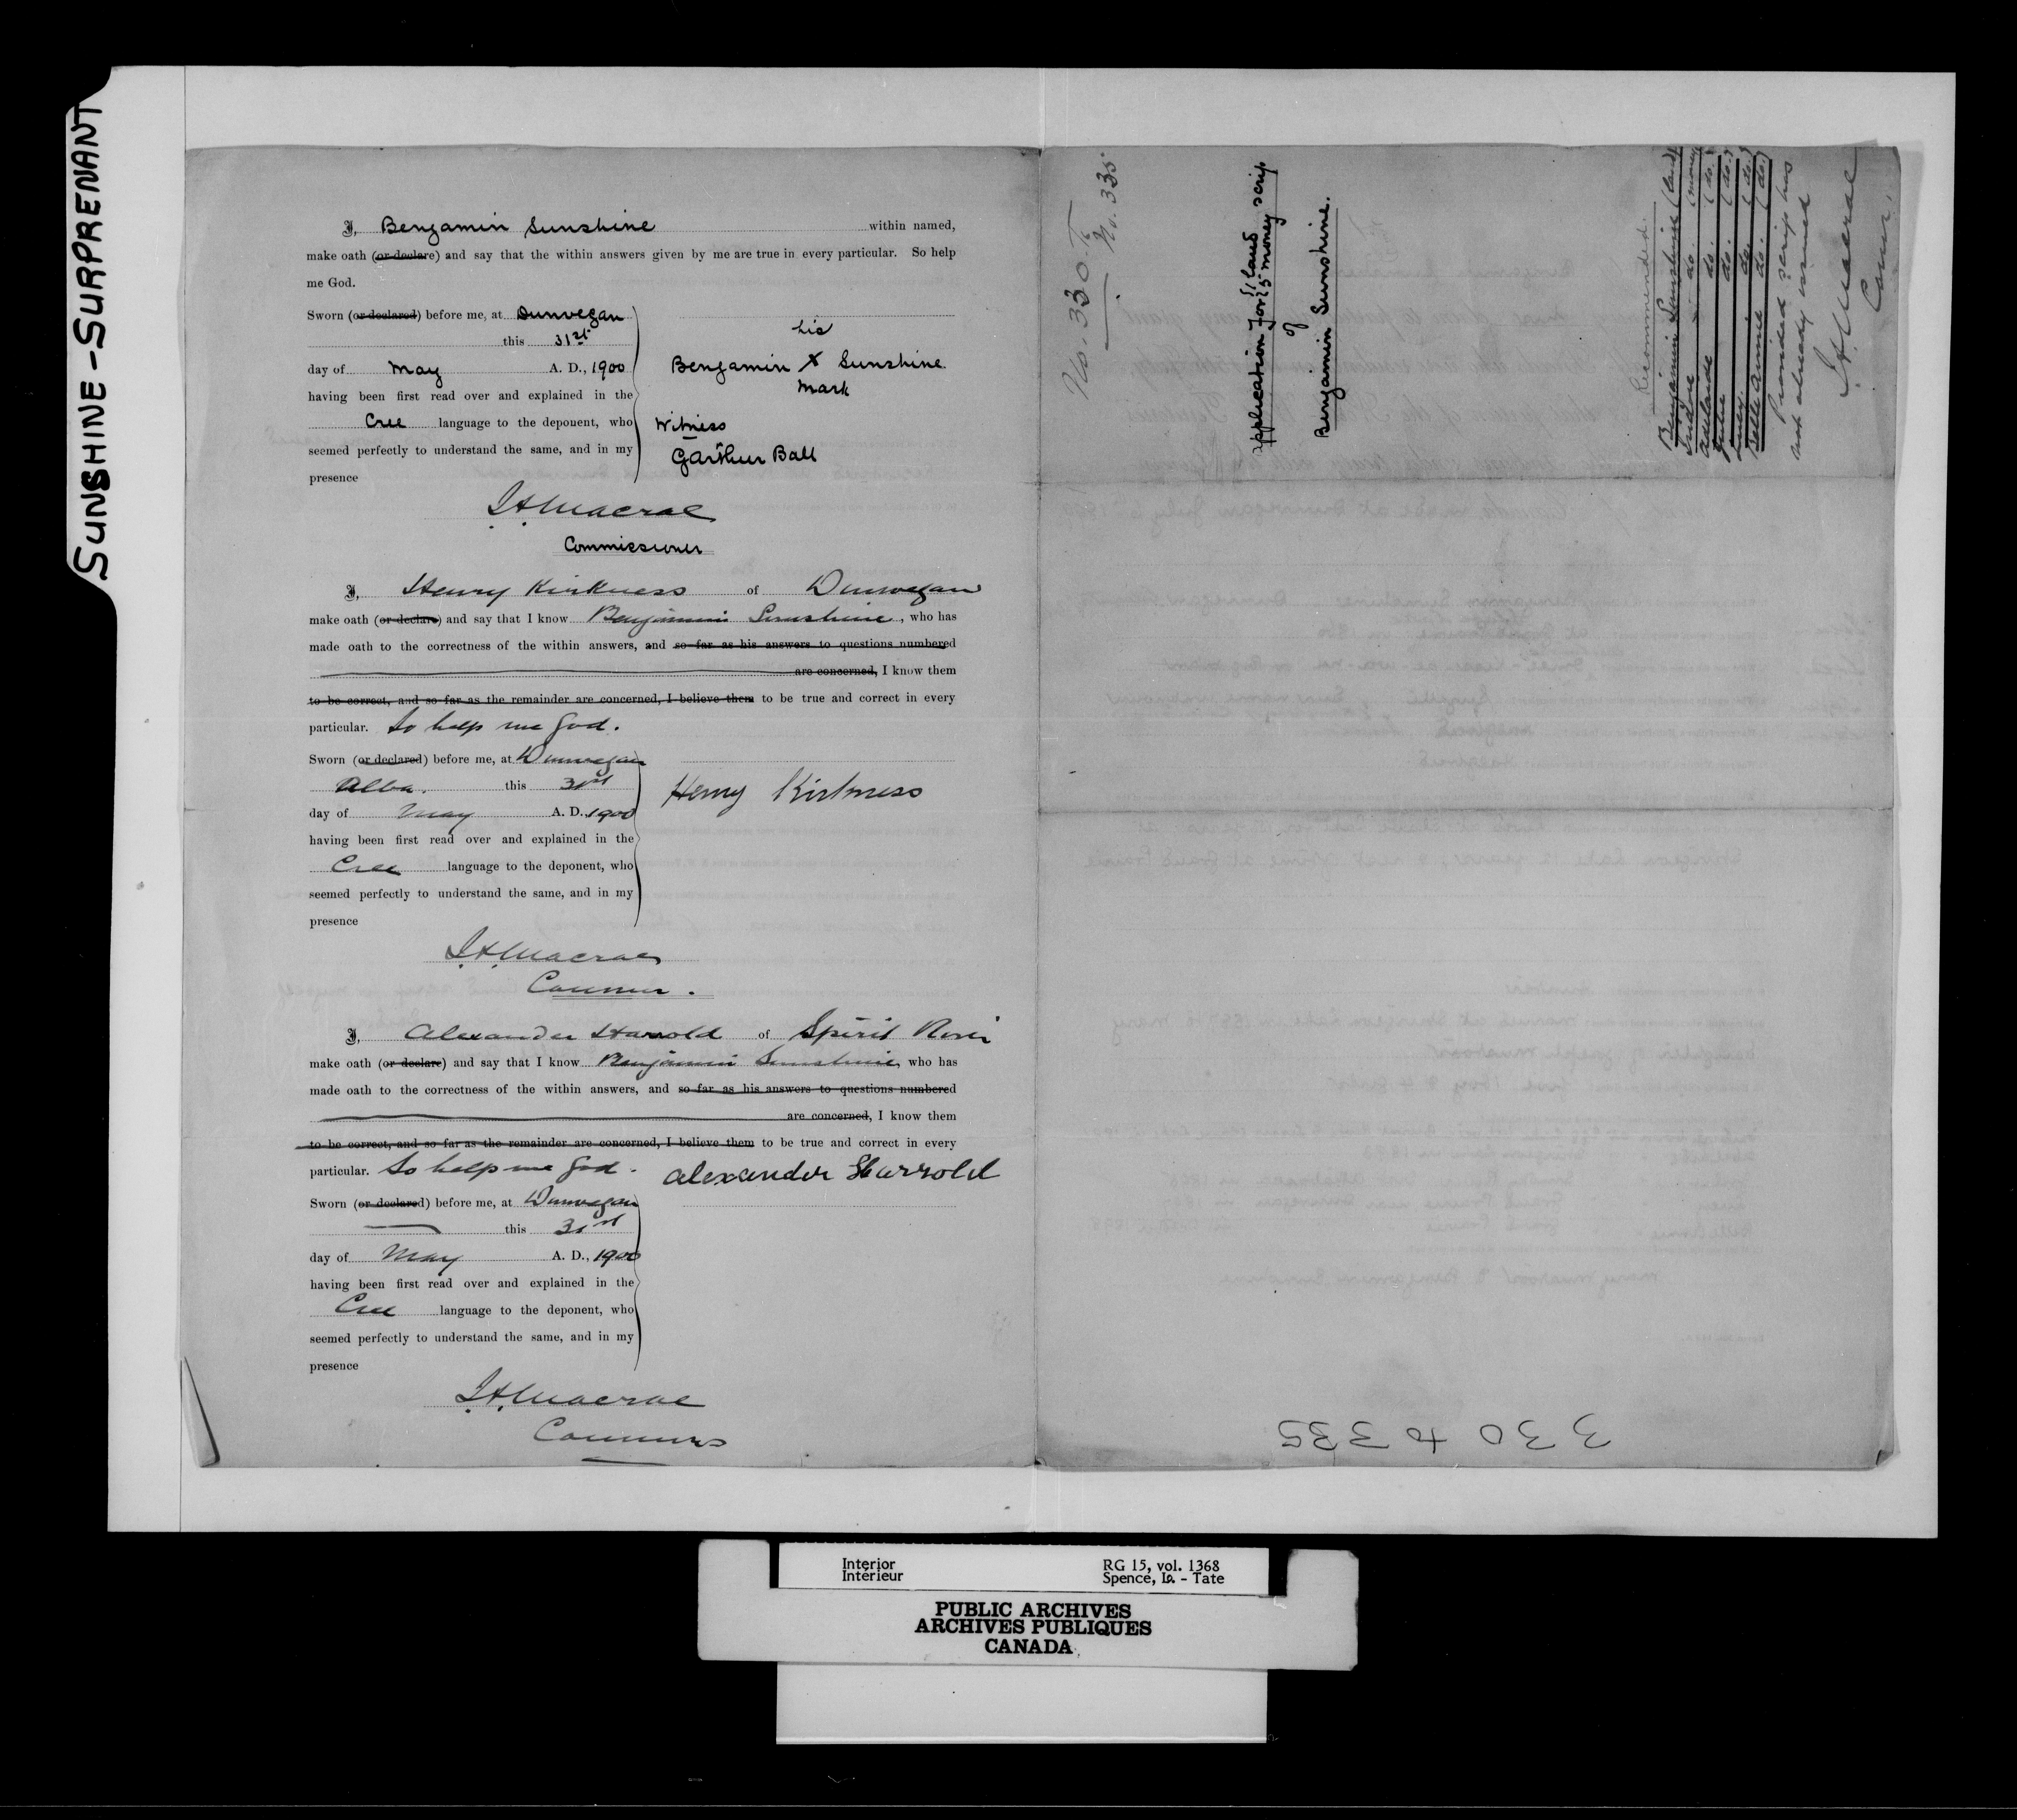 SUNSHINE-SURPRENANT
I, Benjamin Sunshine within named,
make oath (or declare) and say that the within answers given by me are true in every particular. So help
me God.
Sworn (or declared) before me, at Dunvegan
this 31st
day of May A. D., 1900
having been first read over and explained in the
Cree language to the deponent, who
seemed perfectly to understand the same, and in my
presence
his
Benjamin X Sunshine
mark
Witness
GArthur Ball
J.A. Macrae
Commissioner
I, Henry Kirkness of Dunvegan
make oath (or declare) and say that I know Benjamin Sunshine, who has
made oath to the correctness of the within answers, and so far as his answers to questions numbered
are concerned, I know them
to be correct, and so far as the remainder are concerned, I believe them to be true and correct in every
particular. So help me God.
Sworn (or declared) before me, at Dunvegan
Alba. this 31st
day of May A. D., 1900
having been first read over and explained in the
Cree language to the deponent, who
seemed perfectly to understand the same, and in my
presence
Henry Kirkness
J.A. Macrae
Commr.
I, Alexander Harrold of Spirit River
make oath (or declare) and say that I know Benjamin Sunshine, who has
made oath to the correctness of the within answers, and so far as his answers to questions numbered
are concerned, I know them
to be correct, and so far as the remainder are concerned, I believe them to be true and correct in every
particular. So help me God.
Alexander Harrold
Sworn (or declared) before me, at Dunvegan
this 31st
day of May A. D., 1900
having been first read over and explained in the
Cree language to the deponent, who
seemed perfectly to understand the same, and in my
presence
J.A. Macrae
Commr
No. 330. To
No. 335
Application for {1 land
{5 money scrip
of
Benjamin Sunshine.
Recommended.
Benjamin Sunshine (land)
do. (money
Adelaide do. (do.)
do. (do.)
do. (do.)
Belle Annie do. (do.)
Provided scrip has
not already issued
J.A. Macrae
Comr.
330 to 335
Interior
Intérieur
RG 15, vol. 1368
Spence, Is. - Tate
PUBLIC ARCHIVES
ARCHIVES PUBLIQUES
CANADA